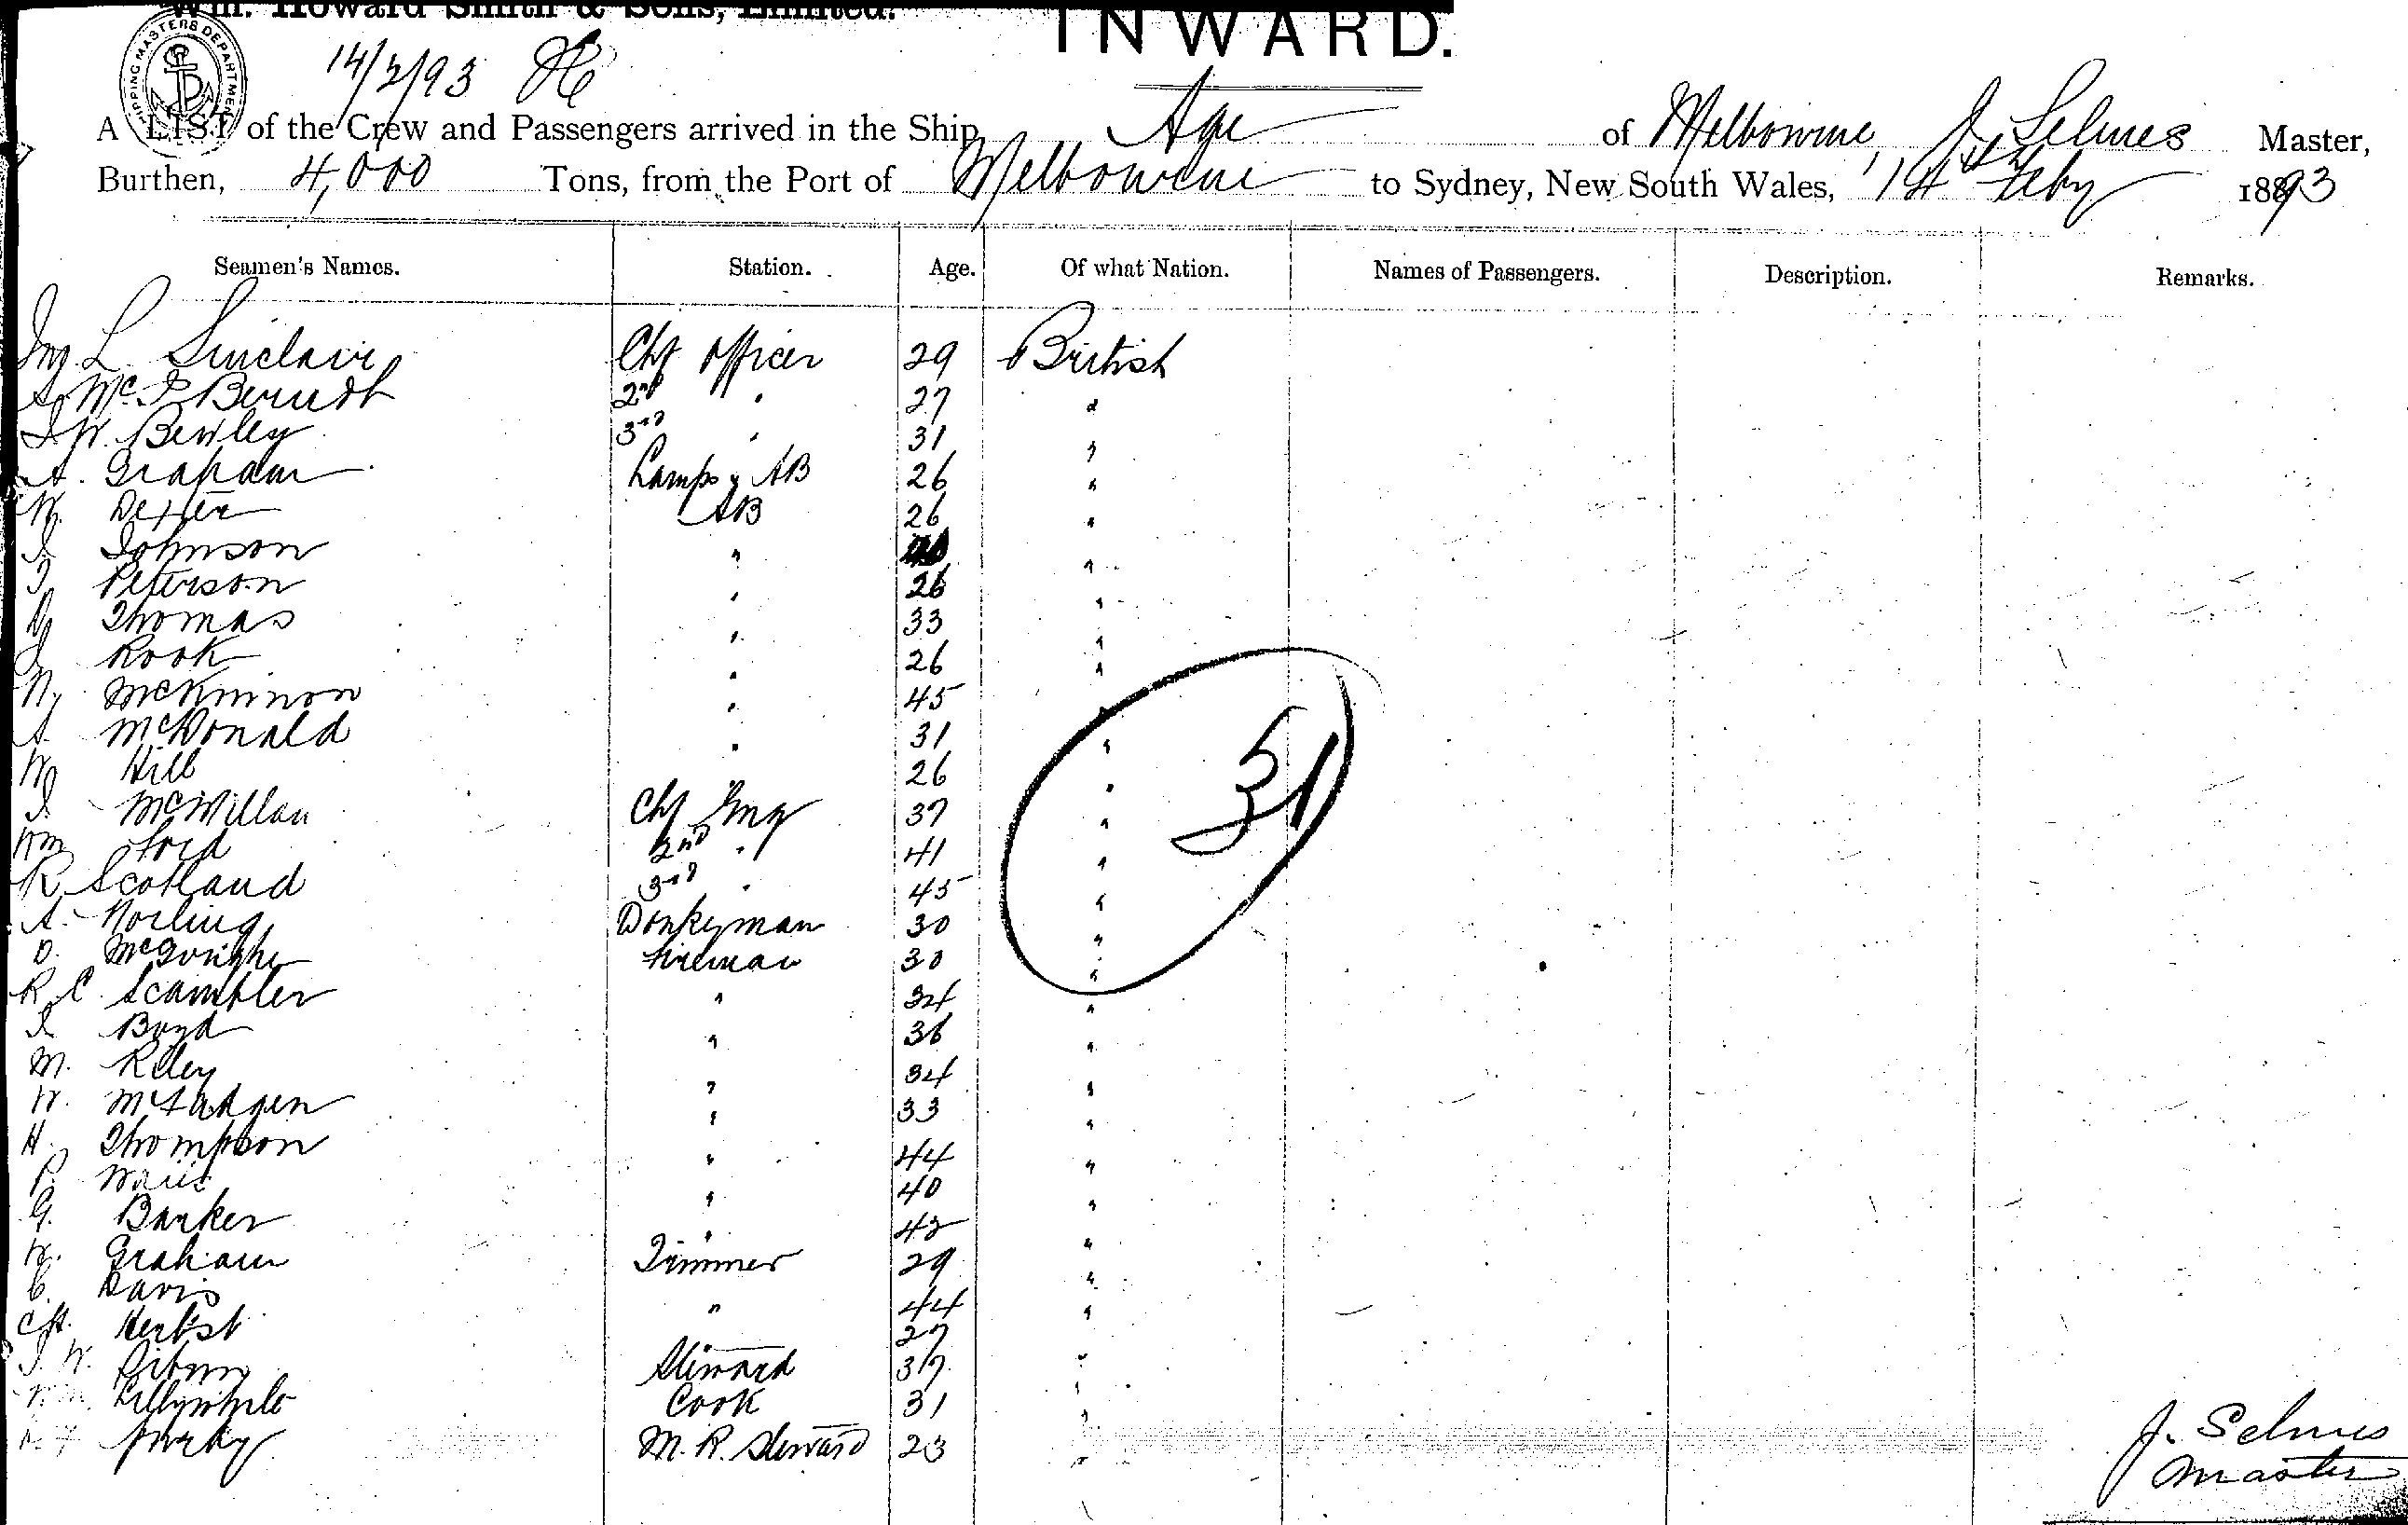 Wm. Howard Smith & Sons, Limited.
INWARD.
SHIPPING MASTERS DEPARTMENT
14/2/93
A LIST of the Crew and Passengers arrived in the Ship Age of Melbourne, J. Selmes Master,
Burthen, 4,000 Tons, from the Port of Melbourne to Sydney, New South Wales, 14th Feby 1893
Seamen's Names. Station. Age. Of what Nation. Names of Passengers. Description. Remarks.
Jno L Sinclair Chf Officer 29 British
2nd " 27 "
Bewley 3rd " 31 "
A. Graham Lamps & AB 26 "
W. Dexter AB 26 "
J Johnson " "
Peterson " 26 "
Thomas " 33 "
J Rook " 26 "
N. McKinnon " 45 "
A McDonald " 31 "
Wm Hill " 26 "
J McMillan Chf Eng 37 "
Wm Ford 2nd " 41 "
R Scotland 3rd " 45 "
A. Norling Donkeyman 30 "
D. Fireman 30 "
R. C. Scambler " 34 "
J Boyd " 36 "
M. Riley " 34 "
W. McFadgen " 33 "
H. Thompson " 44 "
P. " 40 "
G. Barker " 42 "
W. Graham Trimmer 29 "
C. Davis " 44 "
Herbst 27
J. W. Steward 37 "
Wm. Lillywhite Cook 31 "
M. R. Steward 23 "
31
J. Selmes
Master